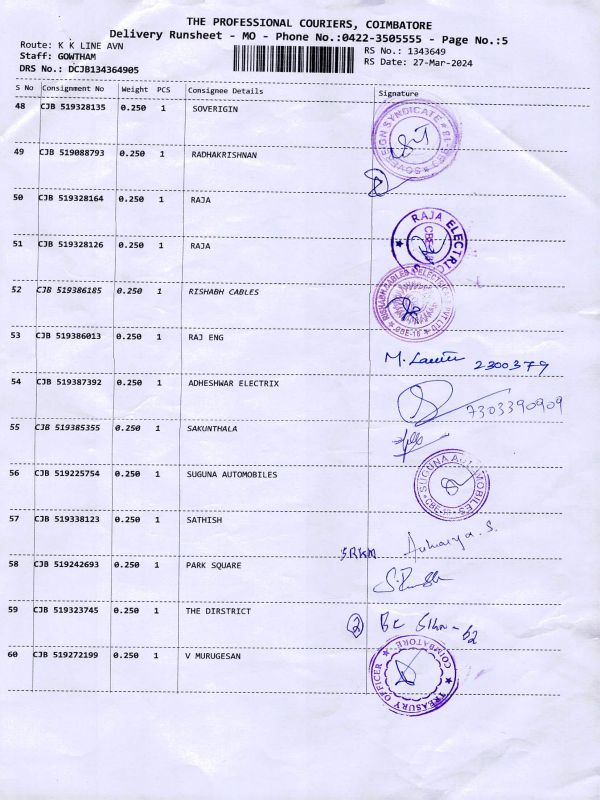 THE PROFESSIONAL COURIERS, COIMBATORE
Delivery Runsheet - MO - Phone No.:0422-3505555 - Page No.:5
Route: K K LINE AVN
RS No.: 1343649
Staff: GOWTHAM
RS Date: 27-Mar-2024
DRS No.: DCJB134364905
S No Consignment No Weight PCS Consignee Details Signature
48 CJB 519328135 0.250 1 SOVERIGIN
SOVEREIGN SYNDICATE
49 CJB 519088793 0.250 1 RADHAKRISHNAN
50 CJB 519328164 0.250 1 RAJA
RAJA ELECTRIC
CBE
51 CJB 519328126 0.250 1 RAJA
52 CJB 519386185 0.250 1 RISHABH CABLES
RISHABH CABLES & ELECTRIC PVT LTD
CBE-18
53 CJB 519386013 0.250 1 RAJ ENG
2300379
54 CJB 519387392 0.250 1 ADHESHWAR ELECTRIX
7303390909
55 CJB 519385355 0.250 1 SAKUNTHALA
56 CJB 519225754 0.250 1 SUGUNA AUTOMOBILES
SUGUNA AUTOMOBILES
57 CJB 519338123 0.250 1 SATHISH
58 CJB 519242693 0.250 1 PARK SQUARE
59 CJB 519323745 0.250 1 THE DIRSTRICT
60 CJB 519272199 0.250 1 V MURUGESAN
TREASURY OFFICER
COIMBATORE